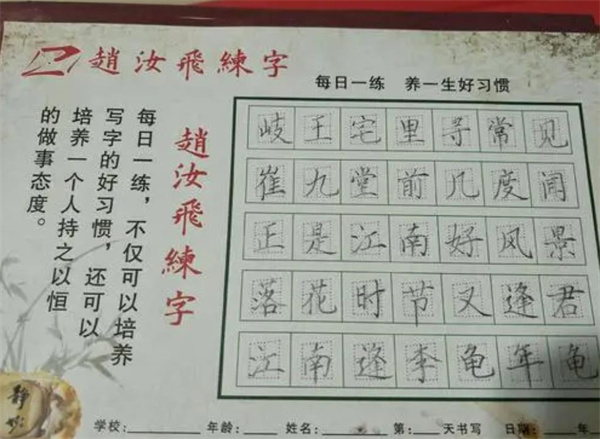 趙汝飛練字
每日一练 养一生好习惯
岐王宅里寻常见
崔九堂前几度闻
正是江南好风景
落花时节又逢君
江南逢李龟年龟
趙汝飛練字
每日一练，不仅可以培养
写字的好习惯，还可以
培养一个人持之以恒
的做事态度。
静
学校：________ 年龄：____ 姓名：________ 第：____天书写 日期：____年